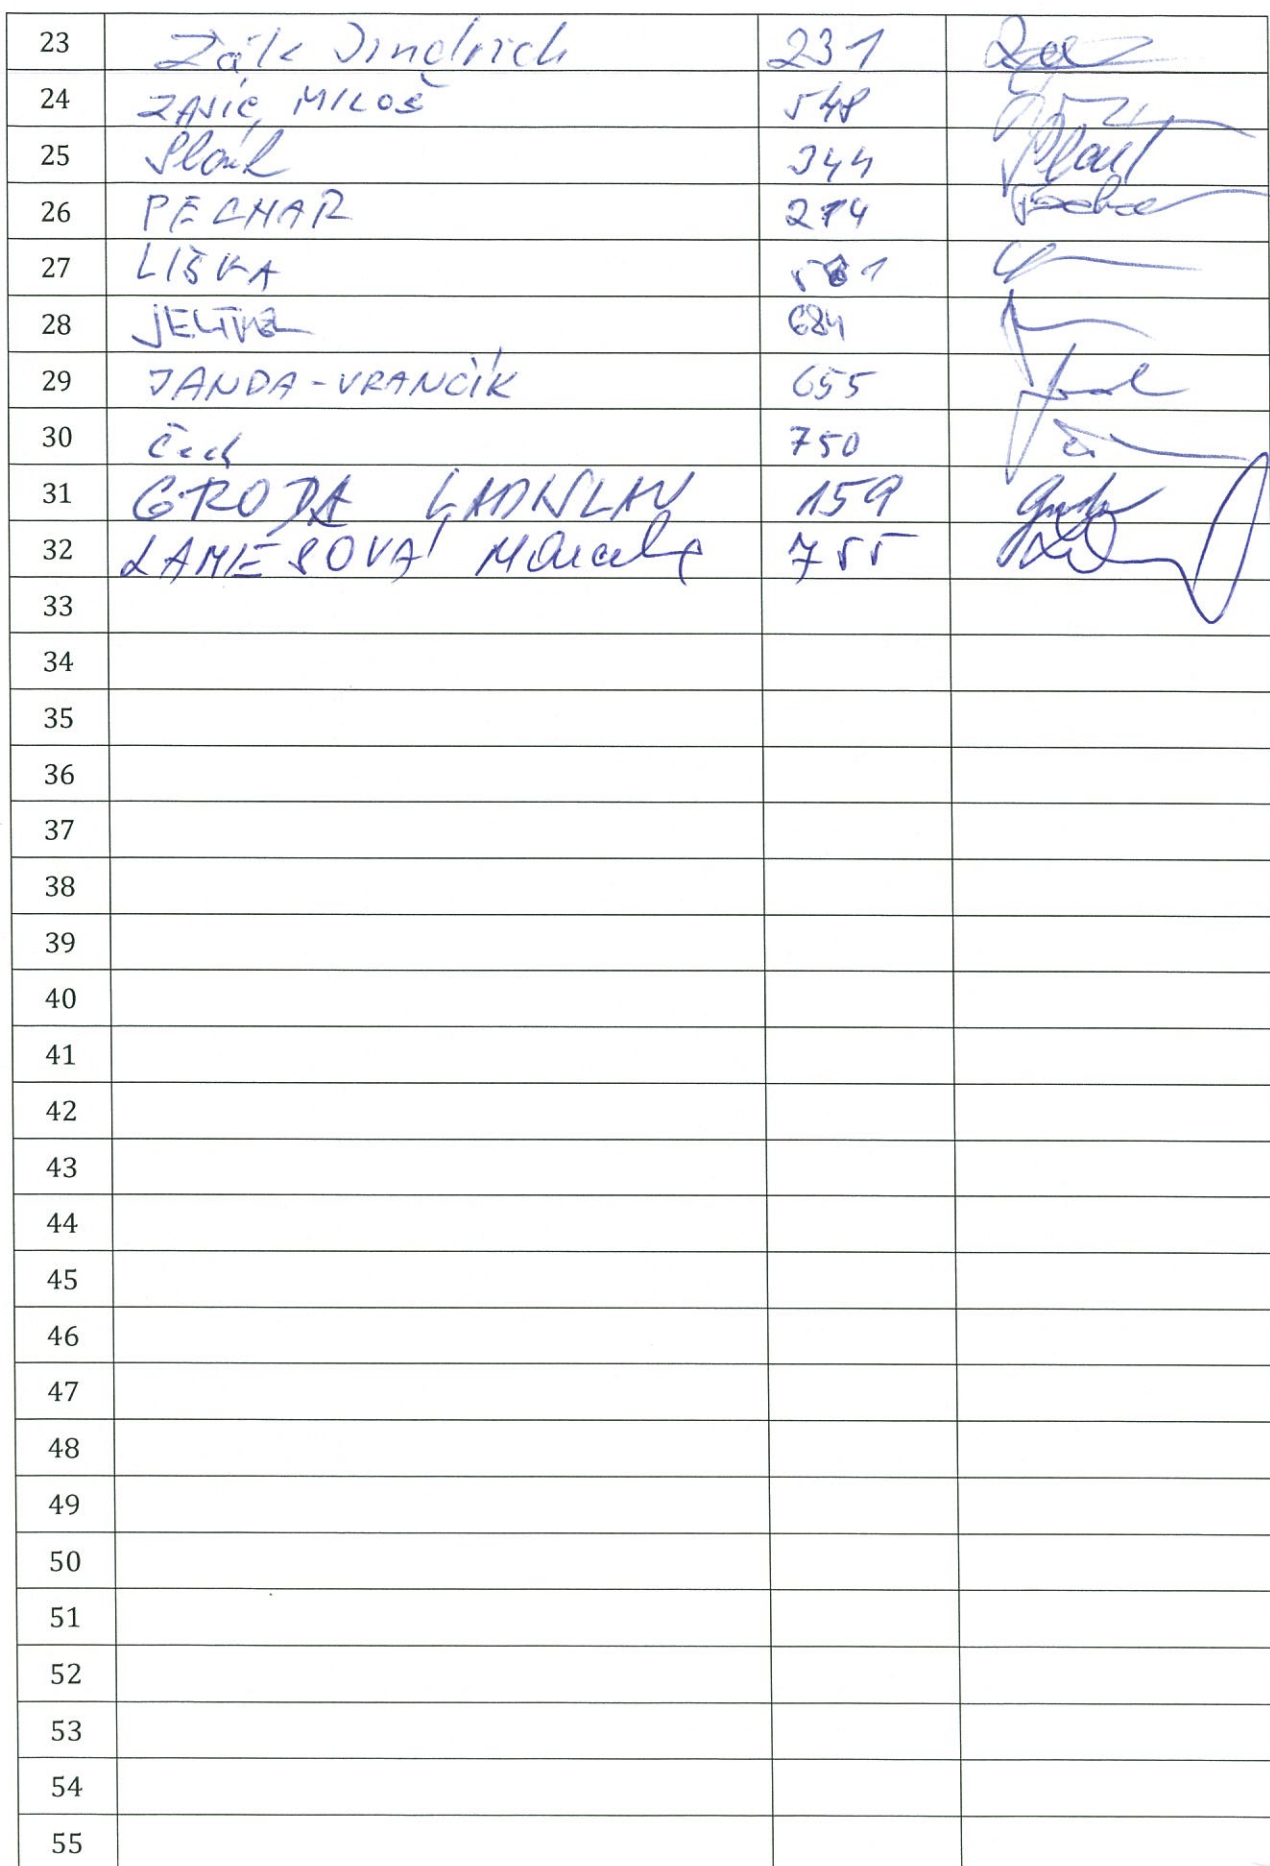 23 Zák Jindrich 231
24 ZAJÍC MILOŠ 548
25 344
26 PECHAR 274
27 LIŠKA 581
28 684
29 JANDA-VRANČÍK 655
30 Čech 750
31 GRODA LADISLAV 159
32 LAMIESOVÁ Marcela 755
33
34
35
36
37
38
39
40
41
42
43
44
45
46
47
48
49
50
51
52
53
54
55